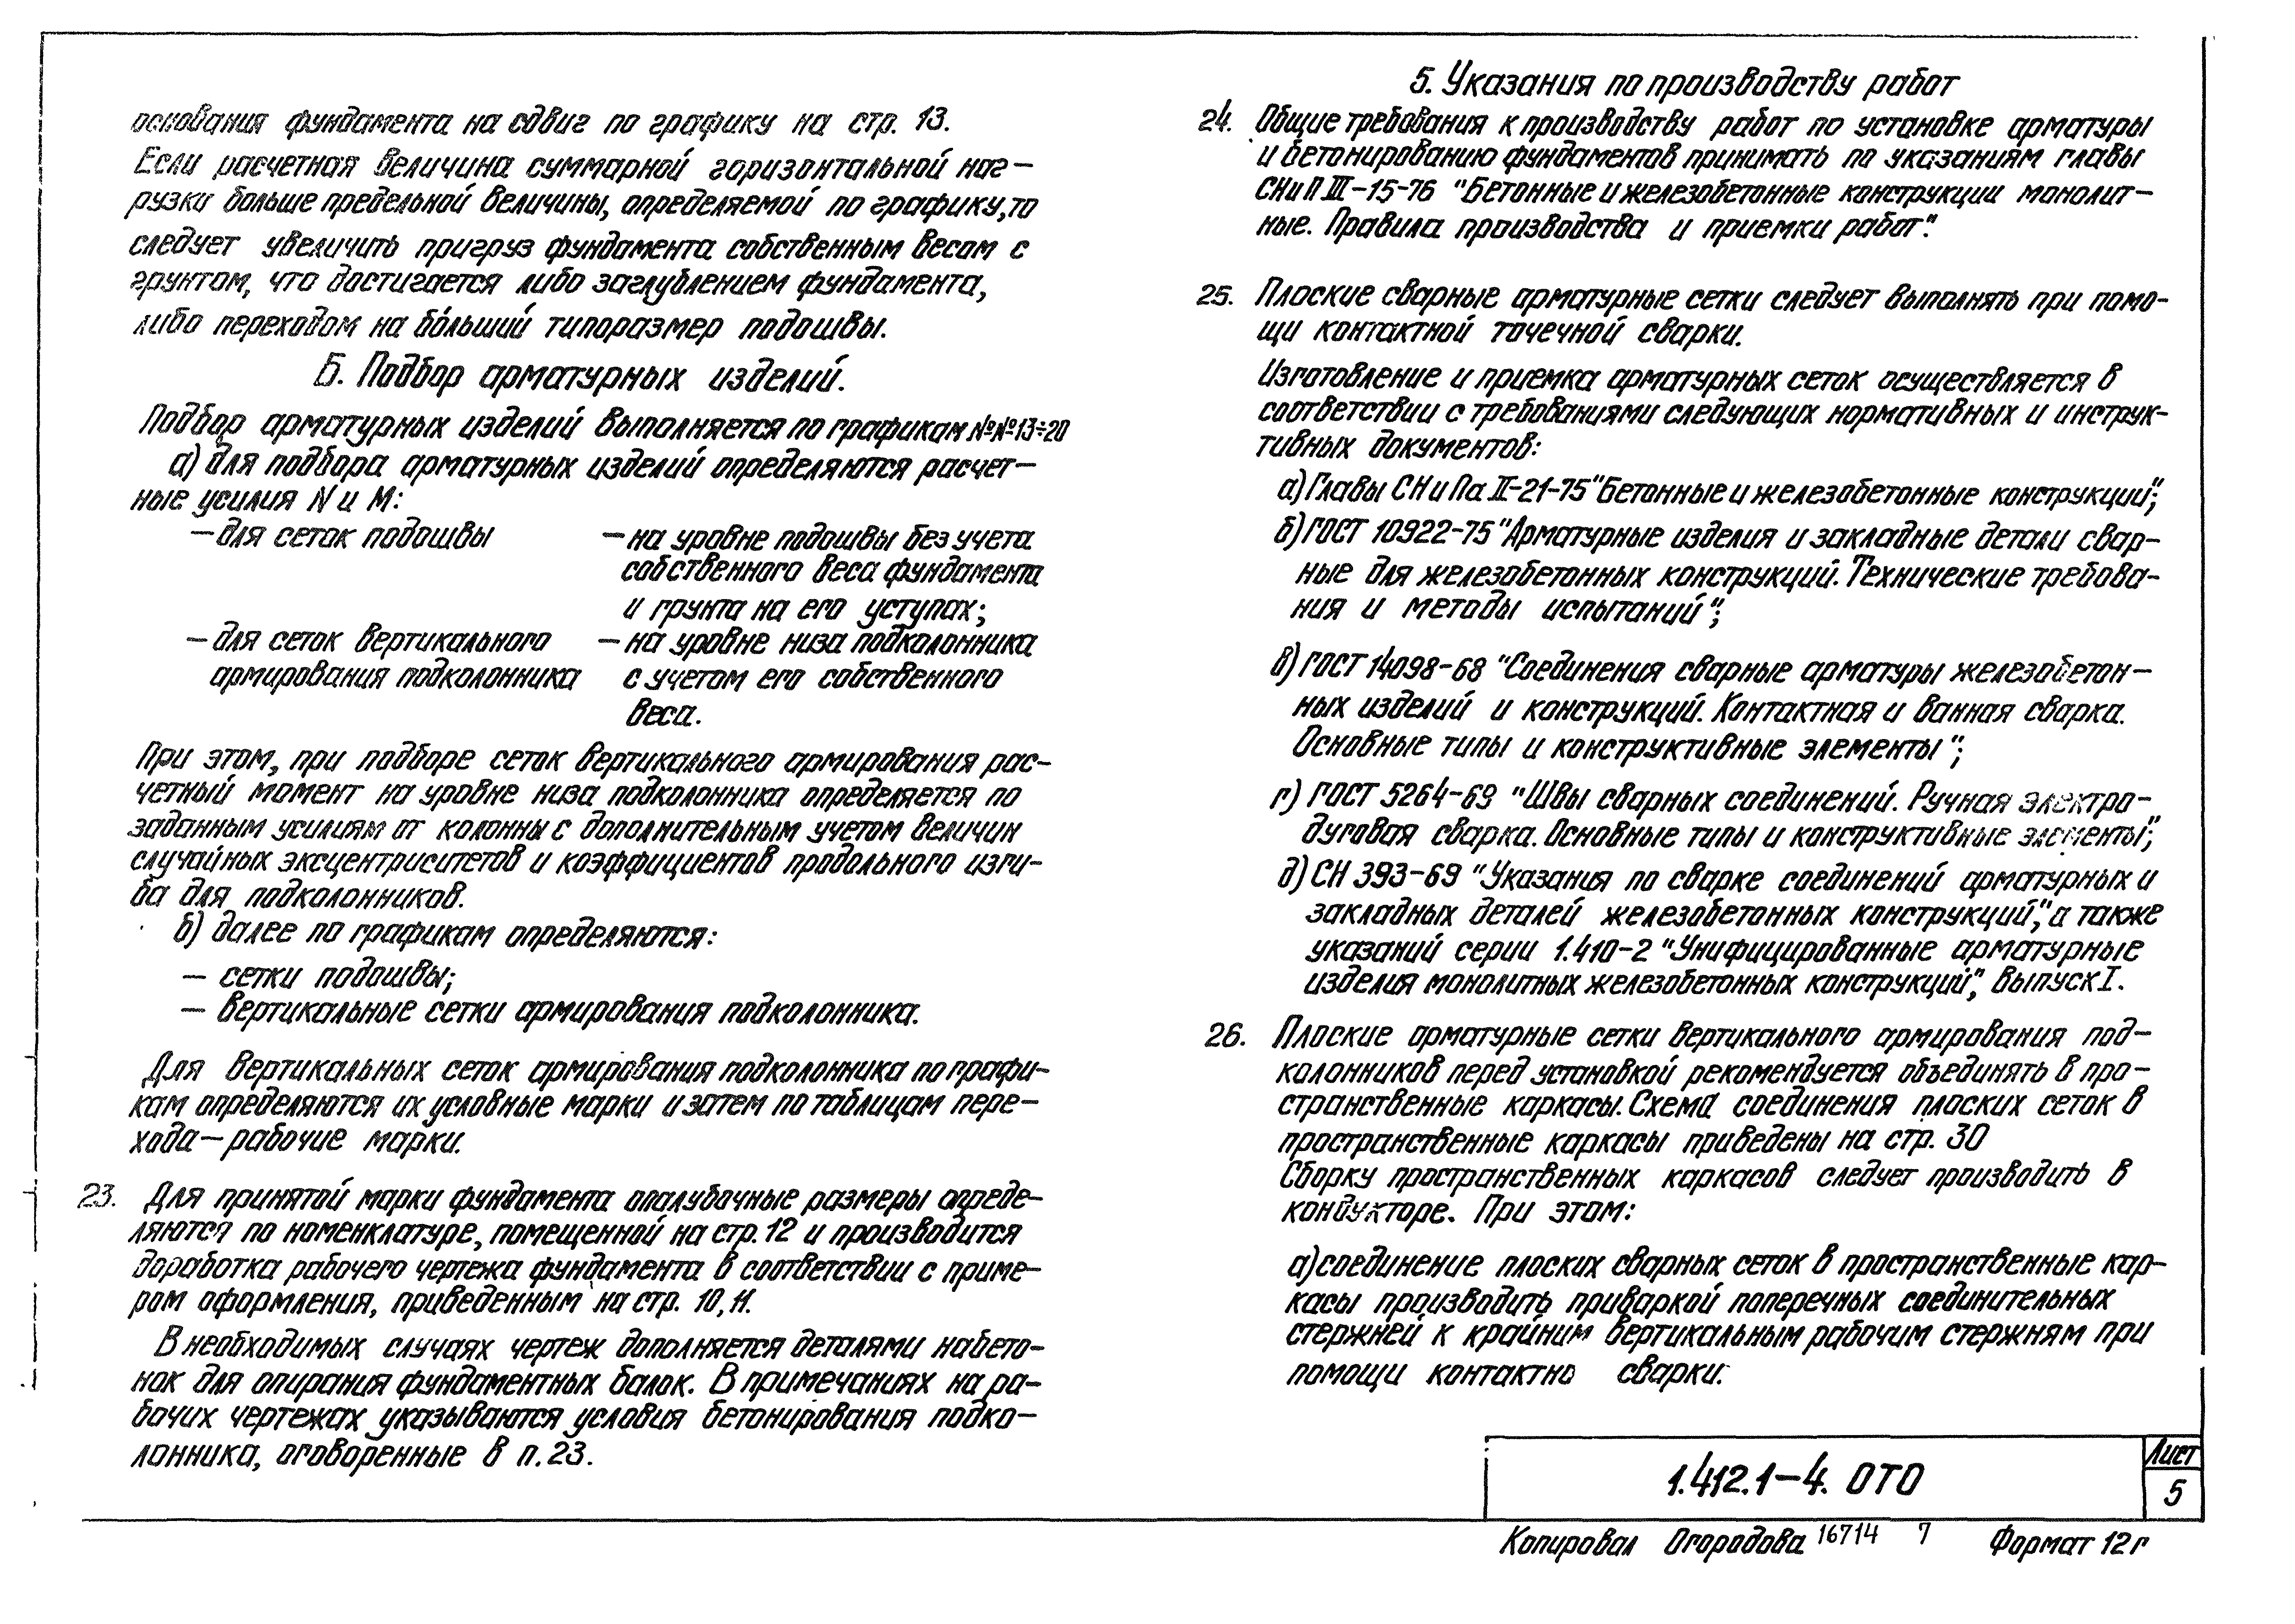 основания фундамента на сдвиг по графику на стр. 13.
Если расчетная величина суммарной горизонтальной наг-
рузки больше предельной величины, определяемой по графику, то
следует увеличить пригруз фундамента собственным весом с
грунтом, что достигается либо заглублением фундамента,
либо переходом на бо́льший типоразмер подошвы.
Б. Подбор арматурных изделий.
Подбор арматурных изделий выполняется по графикам №№13÷20
а) для подбора арматурных изделий определяются расчет-
ные усилия N и М:
— для сеток подошвы — на уровне подошвы без учета
собственного веса фундамента
и грунта на его уступах;
— для сеток вертикального — на уровне низа подколонника
армирования подколонника с учетом его собственного
веса.
При этом, при подборе сеток вертикального армирования рас-
четный момент на уровне низа подколонника определяется по
заданным усилиям от колонны с дополнительным учетом величин
случайных эксцентриситетов и коэффициентов продольного изги-
ба для подколонников.
б) далее по графикам определяются:
— сетки подошвы;
— вертикальные сетки армирования подколонника.
Для вертикальных сеток армирования подколонника по графи-
кам определяются их условные марки и затем по таблицам пере-
хода — рабочие марки.
23. Для принятой марки фундамента опалубочные размеры опреде-
ляются по номенклатуре, помещенной на стр. 12 и производится
доработка рабочего чертежа фундамента в соответствии с приме-
ром оформления, приведенным на стр. 10, 11.
В необходимых случаях чертеж дополняется деталями набето-
нок для опирания фундаментных балок. В примечаниях на ра-
бочих чертежах указываются условия бетонирования подко-
лонника, оговоренные в п. 23.
5. Указания по производству работ
24. Общие требования к производству работ по установке арматуры
и бетонированию фундаментов принимать по указаниям главы
СНиП III-15-76 "Бетонные и железобетонные конструкции монолит-
ные. Правила производства и приемки работ".
25. Плоские сварные арматурные сетки следует выполнять при помо-
щи контактной точечной сварки.
Изготовление и приемка арматурных сеток осуществляется в
соответствии с требованиями следующих нормативных и инструк-
тивных документов:
а) Главы СНиПа II-21-75 "Бетонные и железобетонные конструкции";
б) ГОСТ 10922-75 "Арматурные изделия и закладные детали свар-
ные для железобетонных конструкций. Технические требова-
ния и методы испытаний";
в) ГОСТ 14098-68 "Соединения сварные арматуры железобетон-
ных изделий и конструкций. Контактная и ванная сварка.
Основные типы и конструктивные элементы";
г) ГОСТ 5264-69 "Швы сварных соединений. Ручная электро-
дуговая сварка. Основные типы и конструктивные элементы";
д) СН 393-69 "Указания по сварке соединений арматурных и
закладных деталей железобетонных конструкций", а также
указаний серии 1.410-2 "Унифицированные арматурные
изделия монолитных железобетонных конструкций", выпуск I.
26. Плоские арматурные сетки вертикального армирования под-
колонников перед установкой рекомендуется объединять в про-
странственные каркасы. Схема соединения плоских сеток в
пространственные каркасы приведены на стр. 30
Сборку пространственных каркасов следует производить в
кондукторе. При этом:
а) соединение плоских сварных сеток в пространственные кар-
касы производить приваркой поперечных соединительных
стержней к крайним вертикальным рабочим стержням при
помощи контактно сварки.
1.412.1-4. ОТО
Лист
5
Копировал Огородова 16714 7 Формат 12г